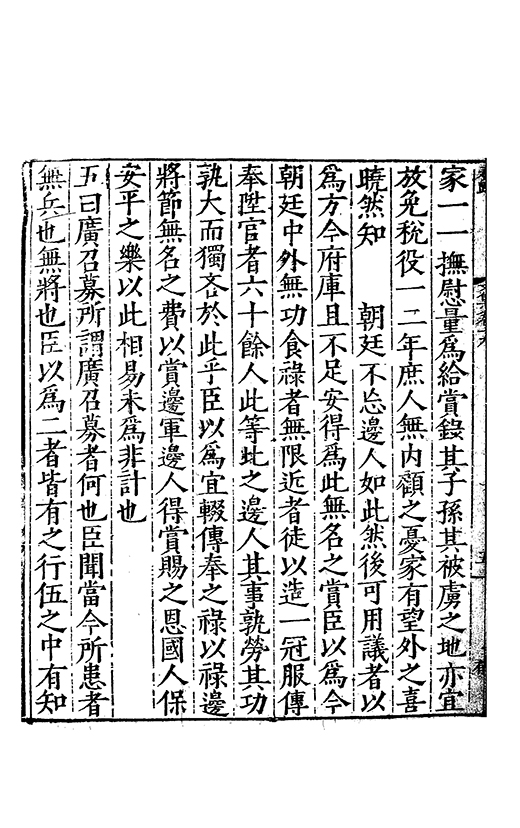 家一一撫慰量爲給賞錄其子孫其被虜之地亦宜
放免稅役一二年庶人無內顧之憂家有望外之喜
曉然知　朝廷不忘邊人如此然後可用議者以
爲方今府庫且不足安得爲此無名之賞臣以爲今
朝廷中外無功食祿者無限近者徒以造一冠服傳
奉陞官者六十餘人此等比之邊人其事孰勞其功
孰大而獨吝於此乎臣以爲宜輟傳奉之祿以祿邊
將節無名之費以賞邊軍邊人得賞賜之恩國人保
安平之樂以此相易未爲非計也
五曰廣召募所謂廣召募者何也臣聞當今所患者
無兵也無將也臣以爲二者皆有之行伍之中有知